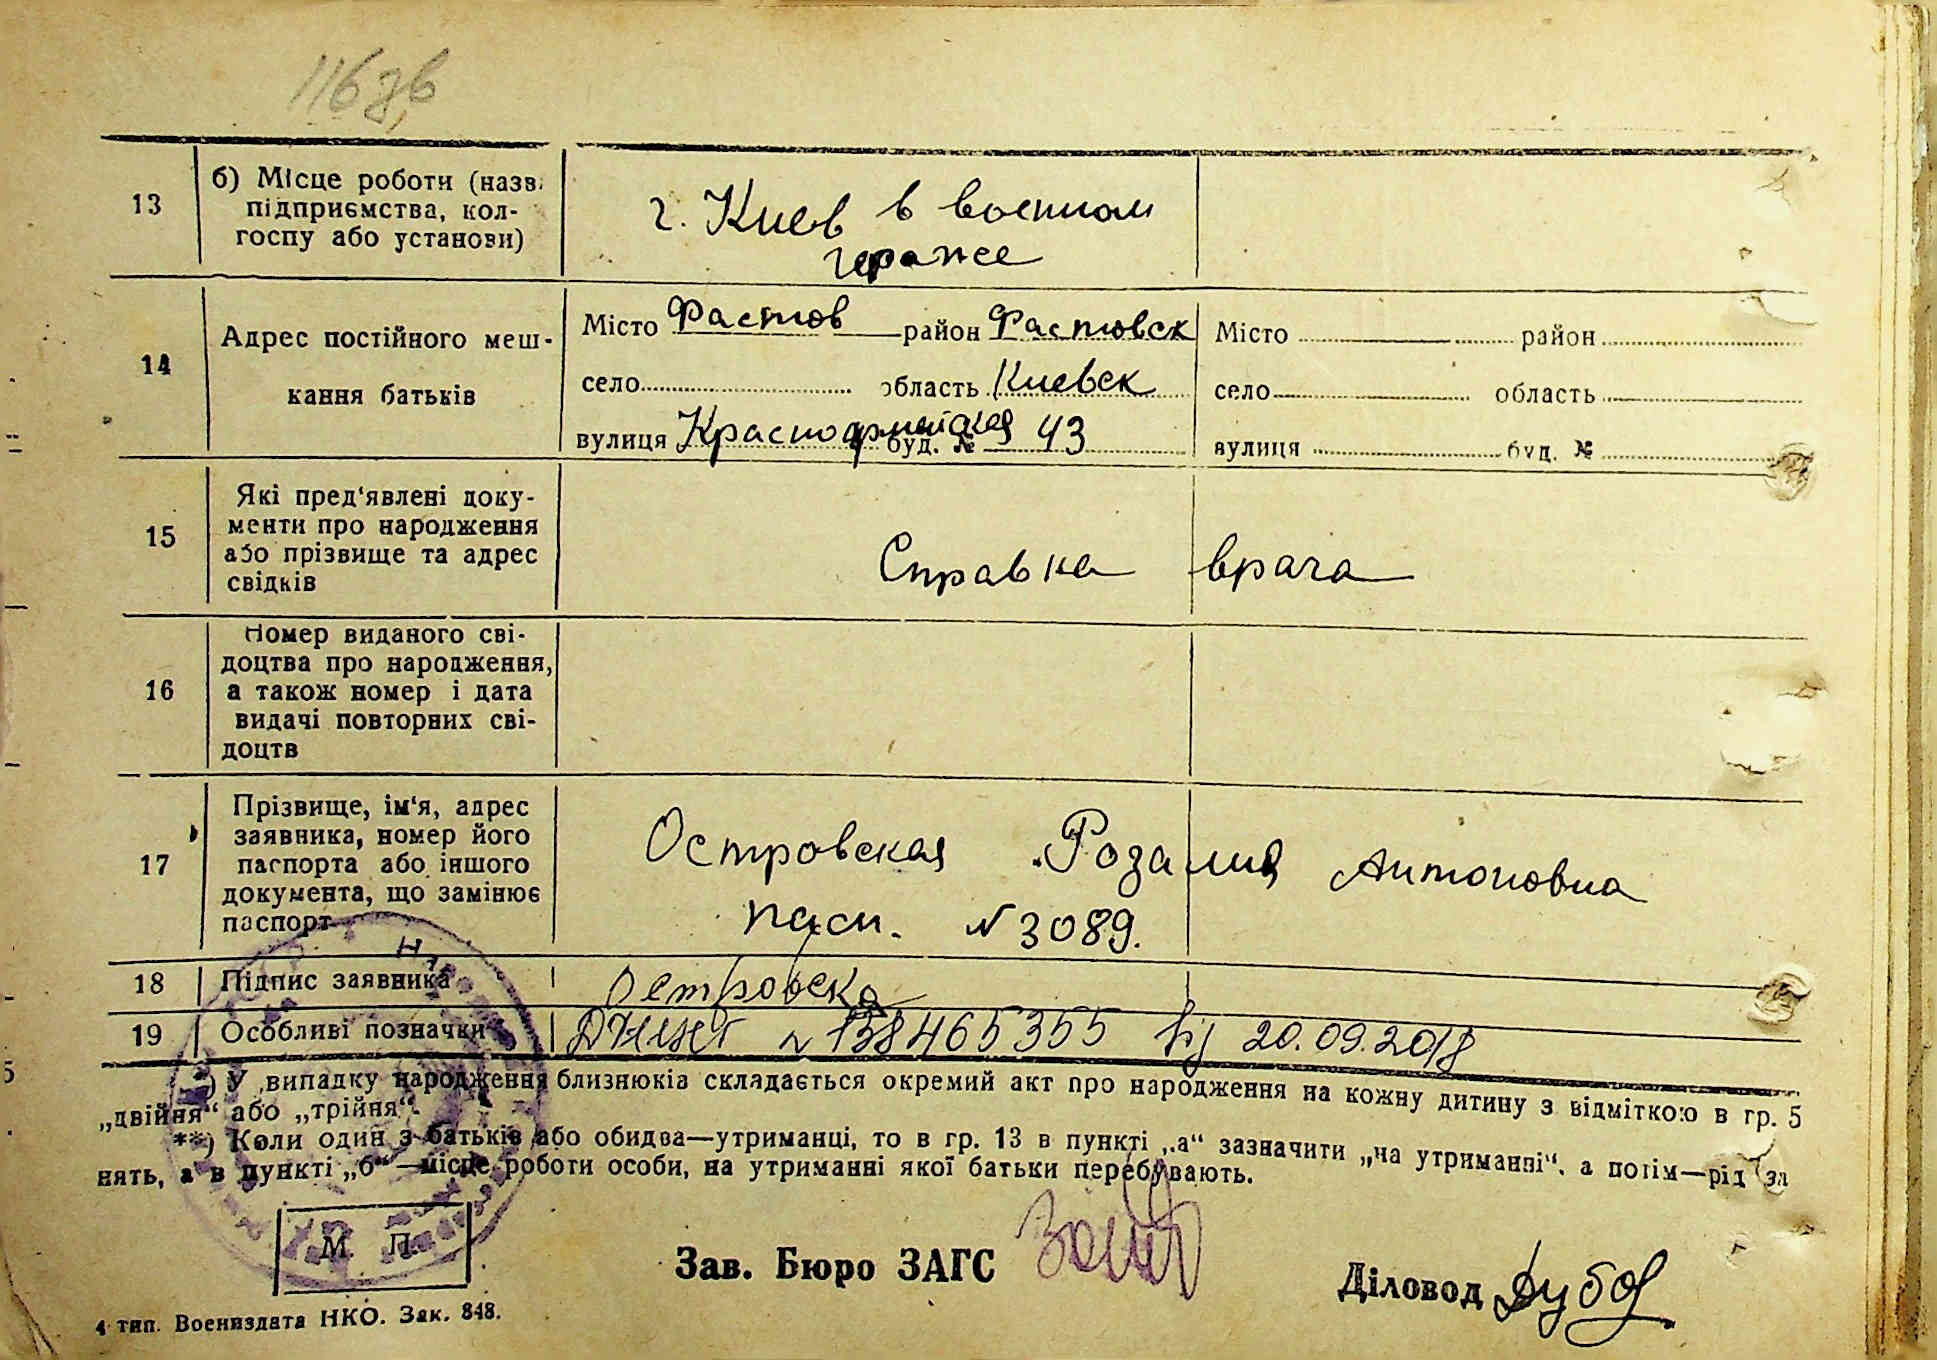 116зв
13
б) Місце роботи (назв.
підприємства, кол-
госпу або установи)
г. Киев в военном
гараже
14
Адрес постійного меш-
кання батьків
Місто Фастов район Фастовск
село область Киевск
вулиця Красноармейская буд. № 43
Місто район
село область
вулиця буд. №
15
Які пред'явлені доку-
менти про народження
або прізвище та адрес
свідків
Справка врача
16
Номер виданого сві-
доцтва про народження,
а також номер і дата
видачі повторних сві-
доцтв
17
Прізвище, ім'я, адрес
заявника, номер його
паспорта або іншого
документа, що замінює
паспорт
Островская Розалия Антоновна
пасп. № 3089.
18
Підпис заявника
Островска
19
Особливі позначки
N 138465355 від 20.09.2018
*) У випадку народження близнюків складається окремий акт про народження на кожну дитину з відміткою в гр. 5
„двійня“ або „трійня“.
**) Коли один з батьків або обидва—утриманці, то в гр. 13 в пункті „а“ зазначити „на утриманні“, а потім—рід за
нять, а в пункті „б“—місце роботи особи, на утриманні якої батьки перебувають.
М. П.
Зав. Бюро ЗАГС
Діловод
4 тип. Воениздата НКО. Зак. 848.